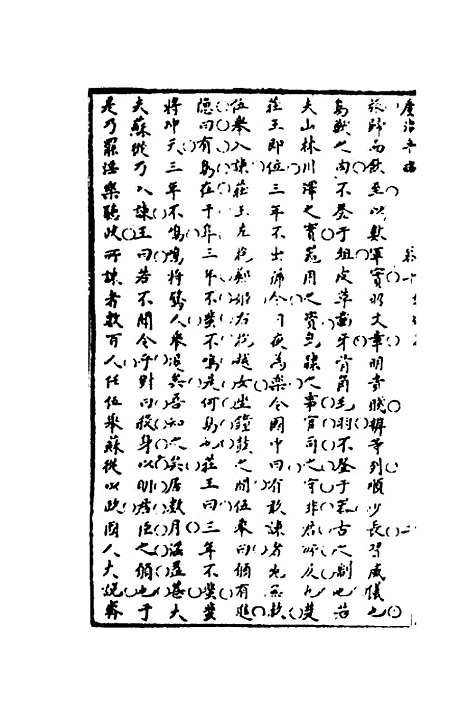 旅歸而飲至以數軍實昭文章明貴賤辨等列順少長習威儀也
鳥獸之肉不登于俎皮革齒牙骨角毛羽不登于器古之制也若
夫山林川澤之實器用之資皂隸之事官司之守非君所及也楚
莊王即位三年不出號令日夜為樂令國中曰有敢諫者死無赦
伍舉入諫莊王左抱鄭姬右抱越女坐鐘鼓之間伍舉曰願有進
隱曰有鳥在于阜三年不蜚不鳴是何鳥也莊王曰三年不蜚蜚
將冲天三年不鳴鳴將驚人舉退矣吾知之矣居數月淫益甚大
夫蘇從乃入諫王曰若不聞令乎對曰殺身以明君臣之願也于
是乃罷淫樂聽政所誅者數百人任伍舉蘇從以政國人大悅齊